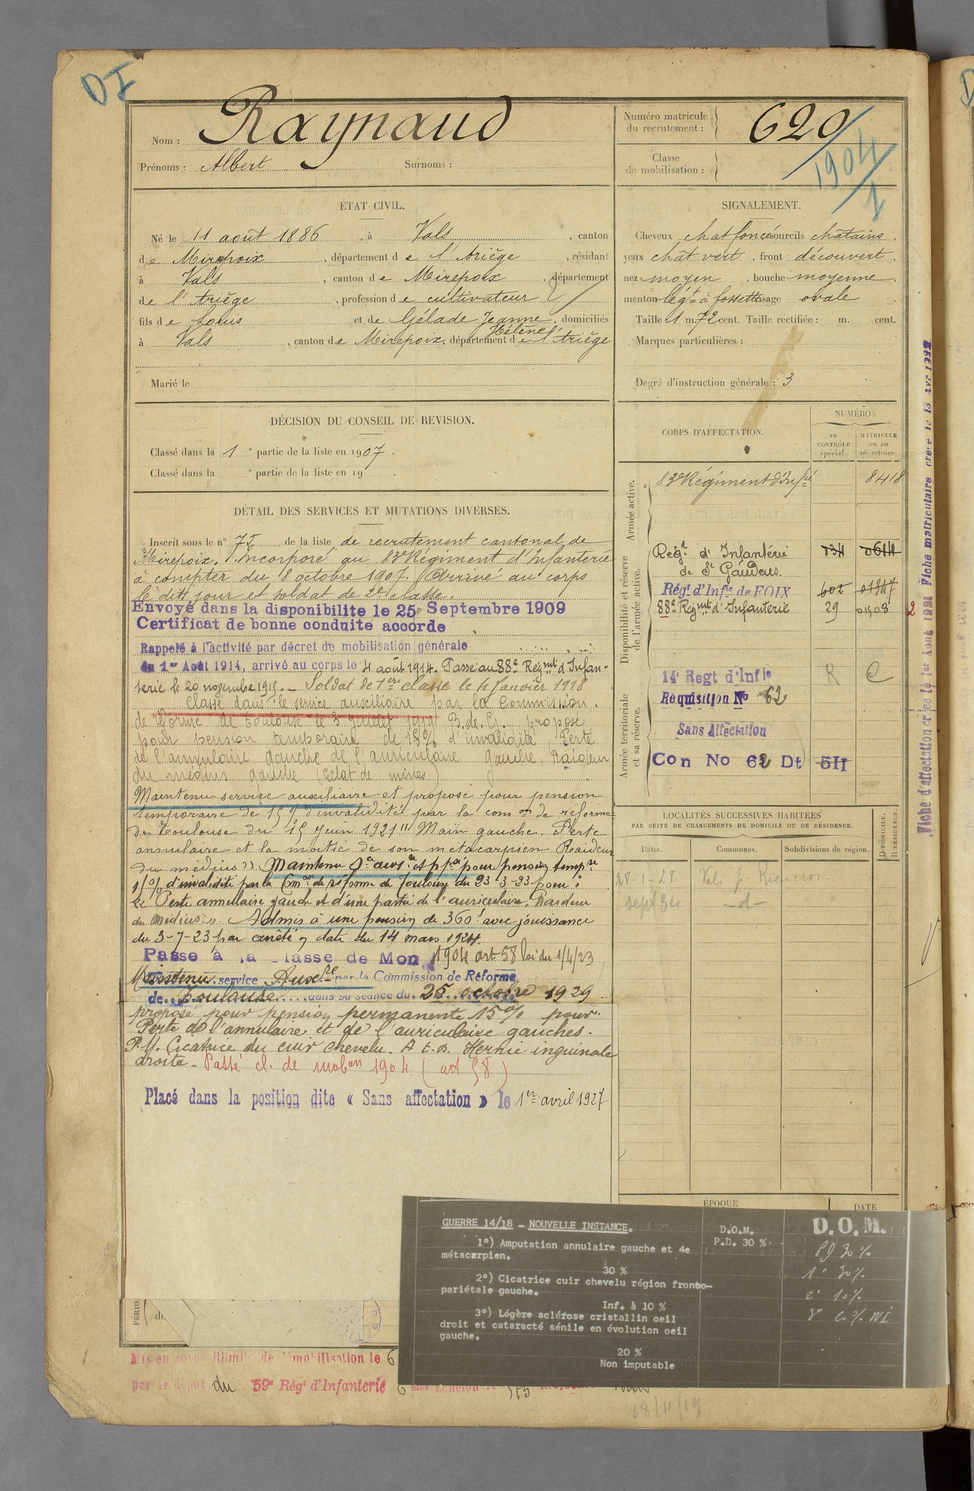 DI
Nom : Raynaud
Prénoms : Albert Surnoms :
Numéro matricule du recrutement : 620
Classe de mobilisation : 1904/1
ÉTAT CIVIL.
Né le 11 août 1886, à Vals, canton
de Mirepoix, département de l'Ariège, résidant
à Vals, canton de Mirepoix, département
de l'Ariège, profession de cultivateur
fils de Louis et de Gélade Jeanne Hélène, domiciliés
à Vals, canton de Mirepoix, département de l'Ariège
Marié le
SIGNALEMENT.
Cheveux chat foncé sourcils chatains
yeux chat vert, front découvert
nez moyen, bouche moyenne
menton lég.t à fossette visage ovale
Taille 1 m. 72 cent. Taille rectifiée : m. cent.
Marques particulières :
Degré d'instruction générale : 3
DÉCISION DU CONSEIL DE REVISION.
Classé dans la 1 e partie de la liste en 1907.
Classé dans la e partie de la liste en 19 .
CORPS D'AFFECTATION.
NUMÉROS
au CONTRÔLE spécial.
MATRICULE ou au répertoire.
Armée active.
83e Régiment d'Infie 8418
Disponibilité et réserve de l'armée active.
Regt d'Infanterie de St Gaudens.
Régt d'Infie de FOIX
88e Regmt d'Infanterie 29
Armée territoriale et sa réserve.
14e Regt d'Infie R C
Requisition No 62
Sans Affectation
Con No 62 Dt 511
DÉTAIL DES SERVICES ET MUTATIONS DIVERSES.
Inscrit sous le n° 75 de la liste de recrutement cantonal de
Mirepoix. Incorporé au 83e Régiment d'Infanterie
à compter du 8 octobre 1907. Arrivé au corps
le dit jour et soldat de 2e classe.
Envoyé dans la disponibilite le 25 Septembre 1909
Certificat de bonne conduite accorde
Rappelé à l'activité par décret de mobilisation générale
du 1er Août 1914, arrivé au corps le 4 août 1914. Passé au 88e Régmt d'Infan-
terie le 20 novembre 1915. - Soldat de 1ère classe le 4 Janvier 1918
Classé dans le service auxiliaire par la Commission
de réforme de Toulouse le 3 juillet 1919 B.de G. proposé
pour pension temporaire de 15% d'invalidité Perte
de l'annulaire gauche de l'auriculaire gauche, Raideur
du médius gauche (éclat de mines)
Maintenu service auxiliaire et proposé pour pension
temporaire de 15% d'invalidité par la com on de réforme
de Toulouse du 15 Juin 1921 "Main gauche. Perte
annulaire et la moitié de son métacarpien Raideur
du médius". Maintenu Sce auxre et ppé pour pension tempre
15% d'invalidité par la Cmon de réforme de Toulouse du 23-3-23 pour :
Perte annulaire gauche et d'une partie de l'auriculaire. Raideur
du médius. Admis à une pension de 360f avec jouissance
du 3-7-23 par arrêté en date du 14 mars 1924.
Passé à la Classe de Mon 1904 art 58 loi du 1/4/23
Maintenu service Auxre par la Commission de Réforme
de Toulouse dans sa séance du 25 octobre 1929
proposé pour pension permanente 15% pour
Perte de l'annulaire et de l'auriculaire gauches.
P.M. Cicatrice du cuir chevelu. A.E.B. Hernie inguinale
droite - Passé cl. de mobon 1904 (art 58)
Placé dans la position dite « Sans affectation » le 1er avril 1927
LOCALITÉS SUCCESSIVES HABITÉES
PAR SUITE DE CHANGEMENTS DE DOMICILE OU DE RÉSIDENCE.
Dates. Communes. Subdivisions de région. D. DOMICILE. R. RÉSIDENCE.
28-1-28 Vals
sept 34 -d-
ÉPOQUE DATE
GUERRE 14/18 - NOUVELLE INSTANCE.
1°) Amputation annulaire gauche et 4e
métacarpien.
30 %
2°) Cicatrice cuir chevelu région fronto-
pariétale gauche.
Inf. à 10 %
3°) Légère sclérose cristallin oeil
droit et cataracté sénile en évolution oeil
gauche.
20 %
Non imputable
D.O.M.
P.D. 30 %
D.O.M.
PD 30 %
1° 30 %
2° 10%
NI
Mis en congé illimité de démobilisation le 6
par le dépôt du 59e Régt d'Infanterie
18/11/19